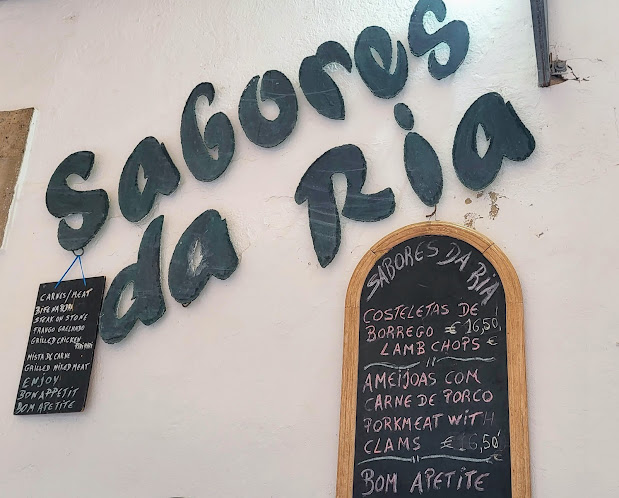 Sabores
da Ria
CARNES/MEAT
BIFE NA PEDRA
STEAK ON STONE
FRANGO GRELHADO
GRILLED CHICKEN
PIRI PIRI
MISTA DE CARNE
GRILLED MIXED MEAT
ENJOY
BON APPETIT
BOM APETITE
SABORES DA RIA
COSTELETAS DE
BORREGO €16,50
LAMB CHOPS €
AMEIJOAS COM
CARNE DE PORCO
PORKMEAT WITH
CLAMS €16,50
BOM APETITE